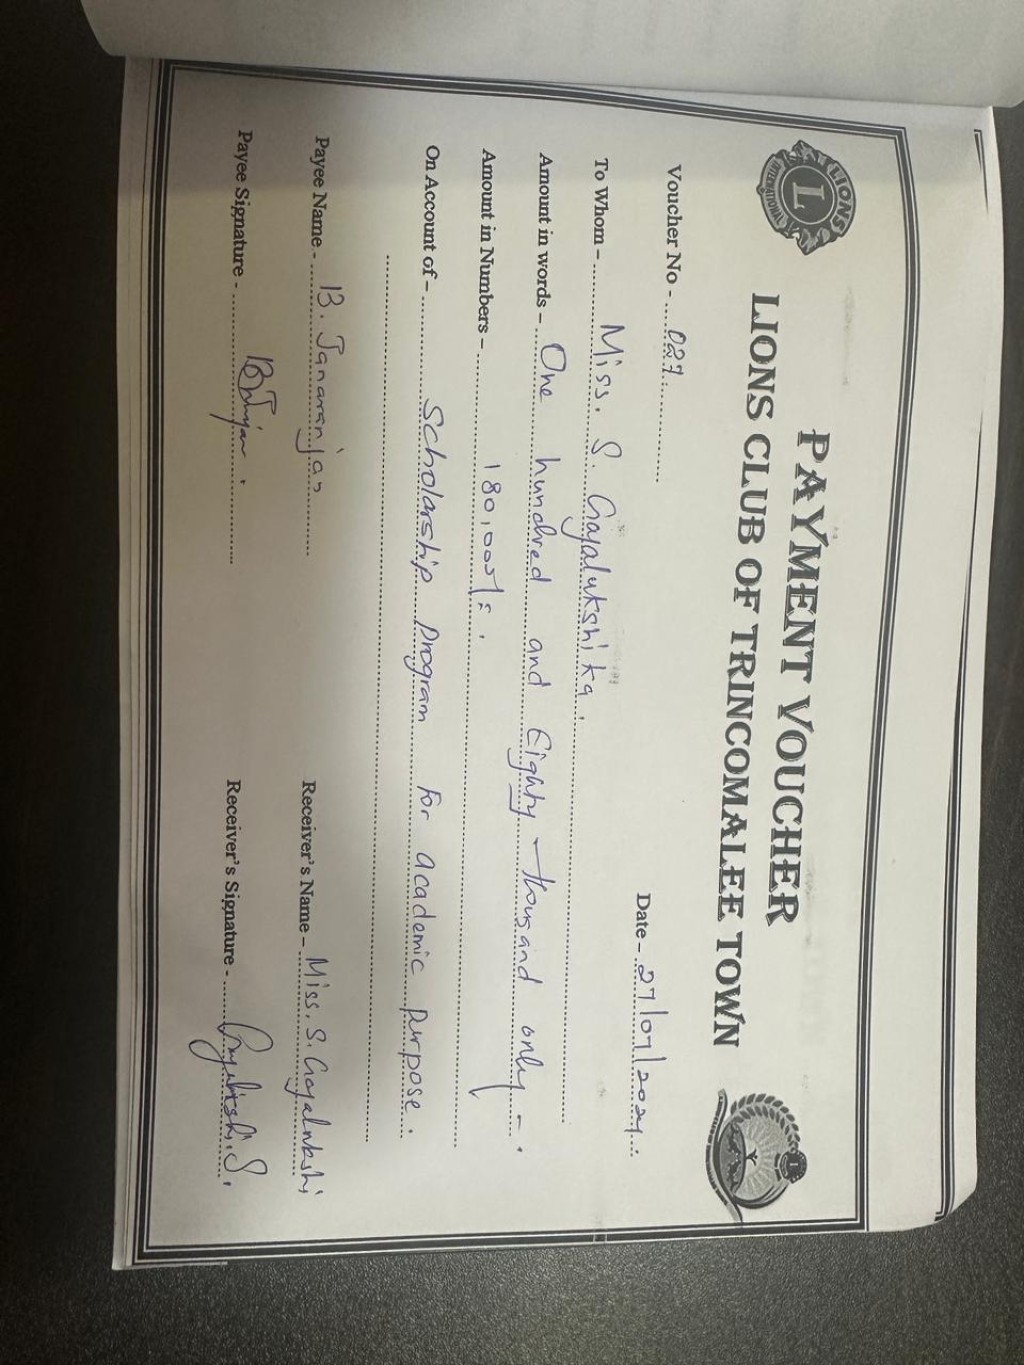 PAYMENT VOUCHER
LIONS CLUB OF TRINCOMALEE TOWN
LIONS
L
INTERNATIONAL
Voucher No - 027
Date - 27/07/2024
To Whom - Miss. S. Gayalukshika.
Amount in words - One hundred and Eighty - thousand only -.
Amount in Numbers - 180,000/=.
On Account of - Scholarship Program for academic purpose.
Payee Name - B. Janaranjan
Receiver's Name - Miss. S. Gayalukshi
Payee Signature -
Receiver's Signature -